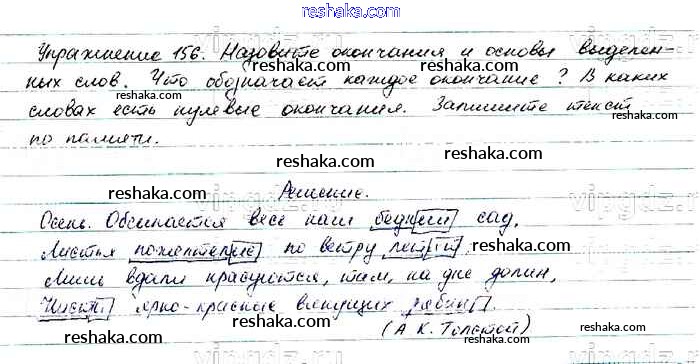 reshaka.com
Упражнение 156. Назовите окончания и основы выделен-
ных слов. Что обозначает каждое окончание? В каких
словах есть нулевые окончания. Запишите текст
по памяти.
reshaka.com
reshaka.com
reshaka.com
reshaka.com
Решение.
Осень. Обсыпается весь наш бедный сад,
Листья пожелтелые по ветру летят;
Лишь вдали красуются, там, на дне долин,
Кисти ярко-красные вянущих рябин.
(А К. Толстой)
reshaka.com
reshaka.com
reshaka.com
reshaka.com
reshaka.com